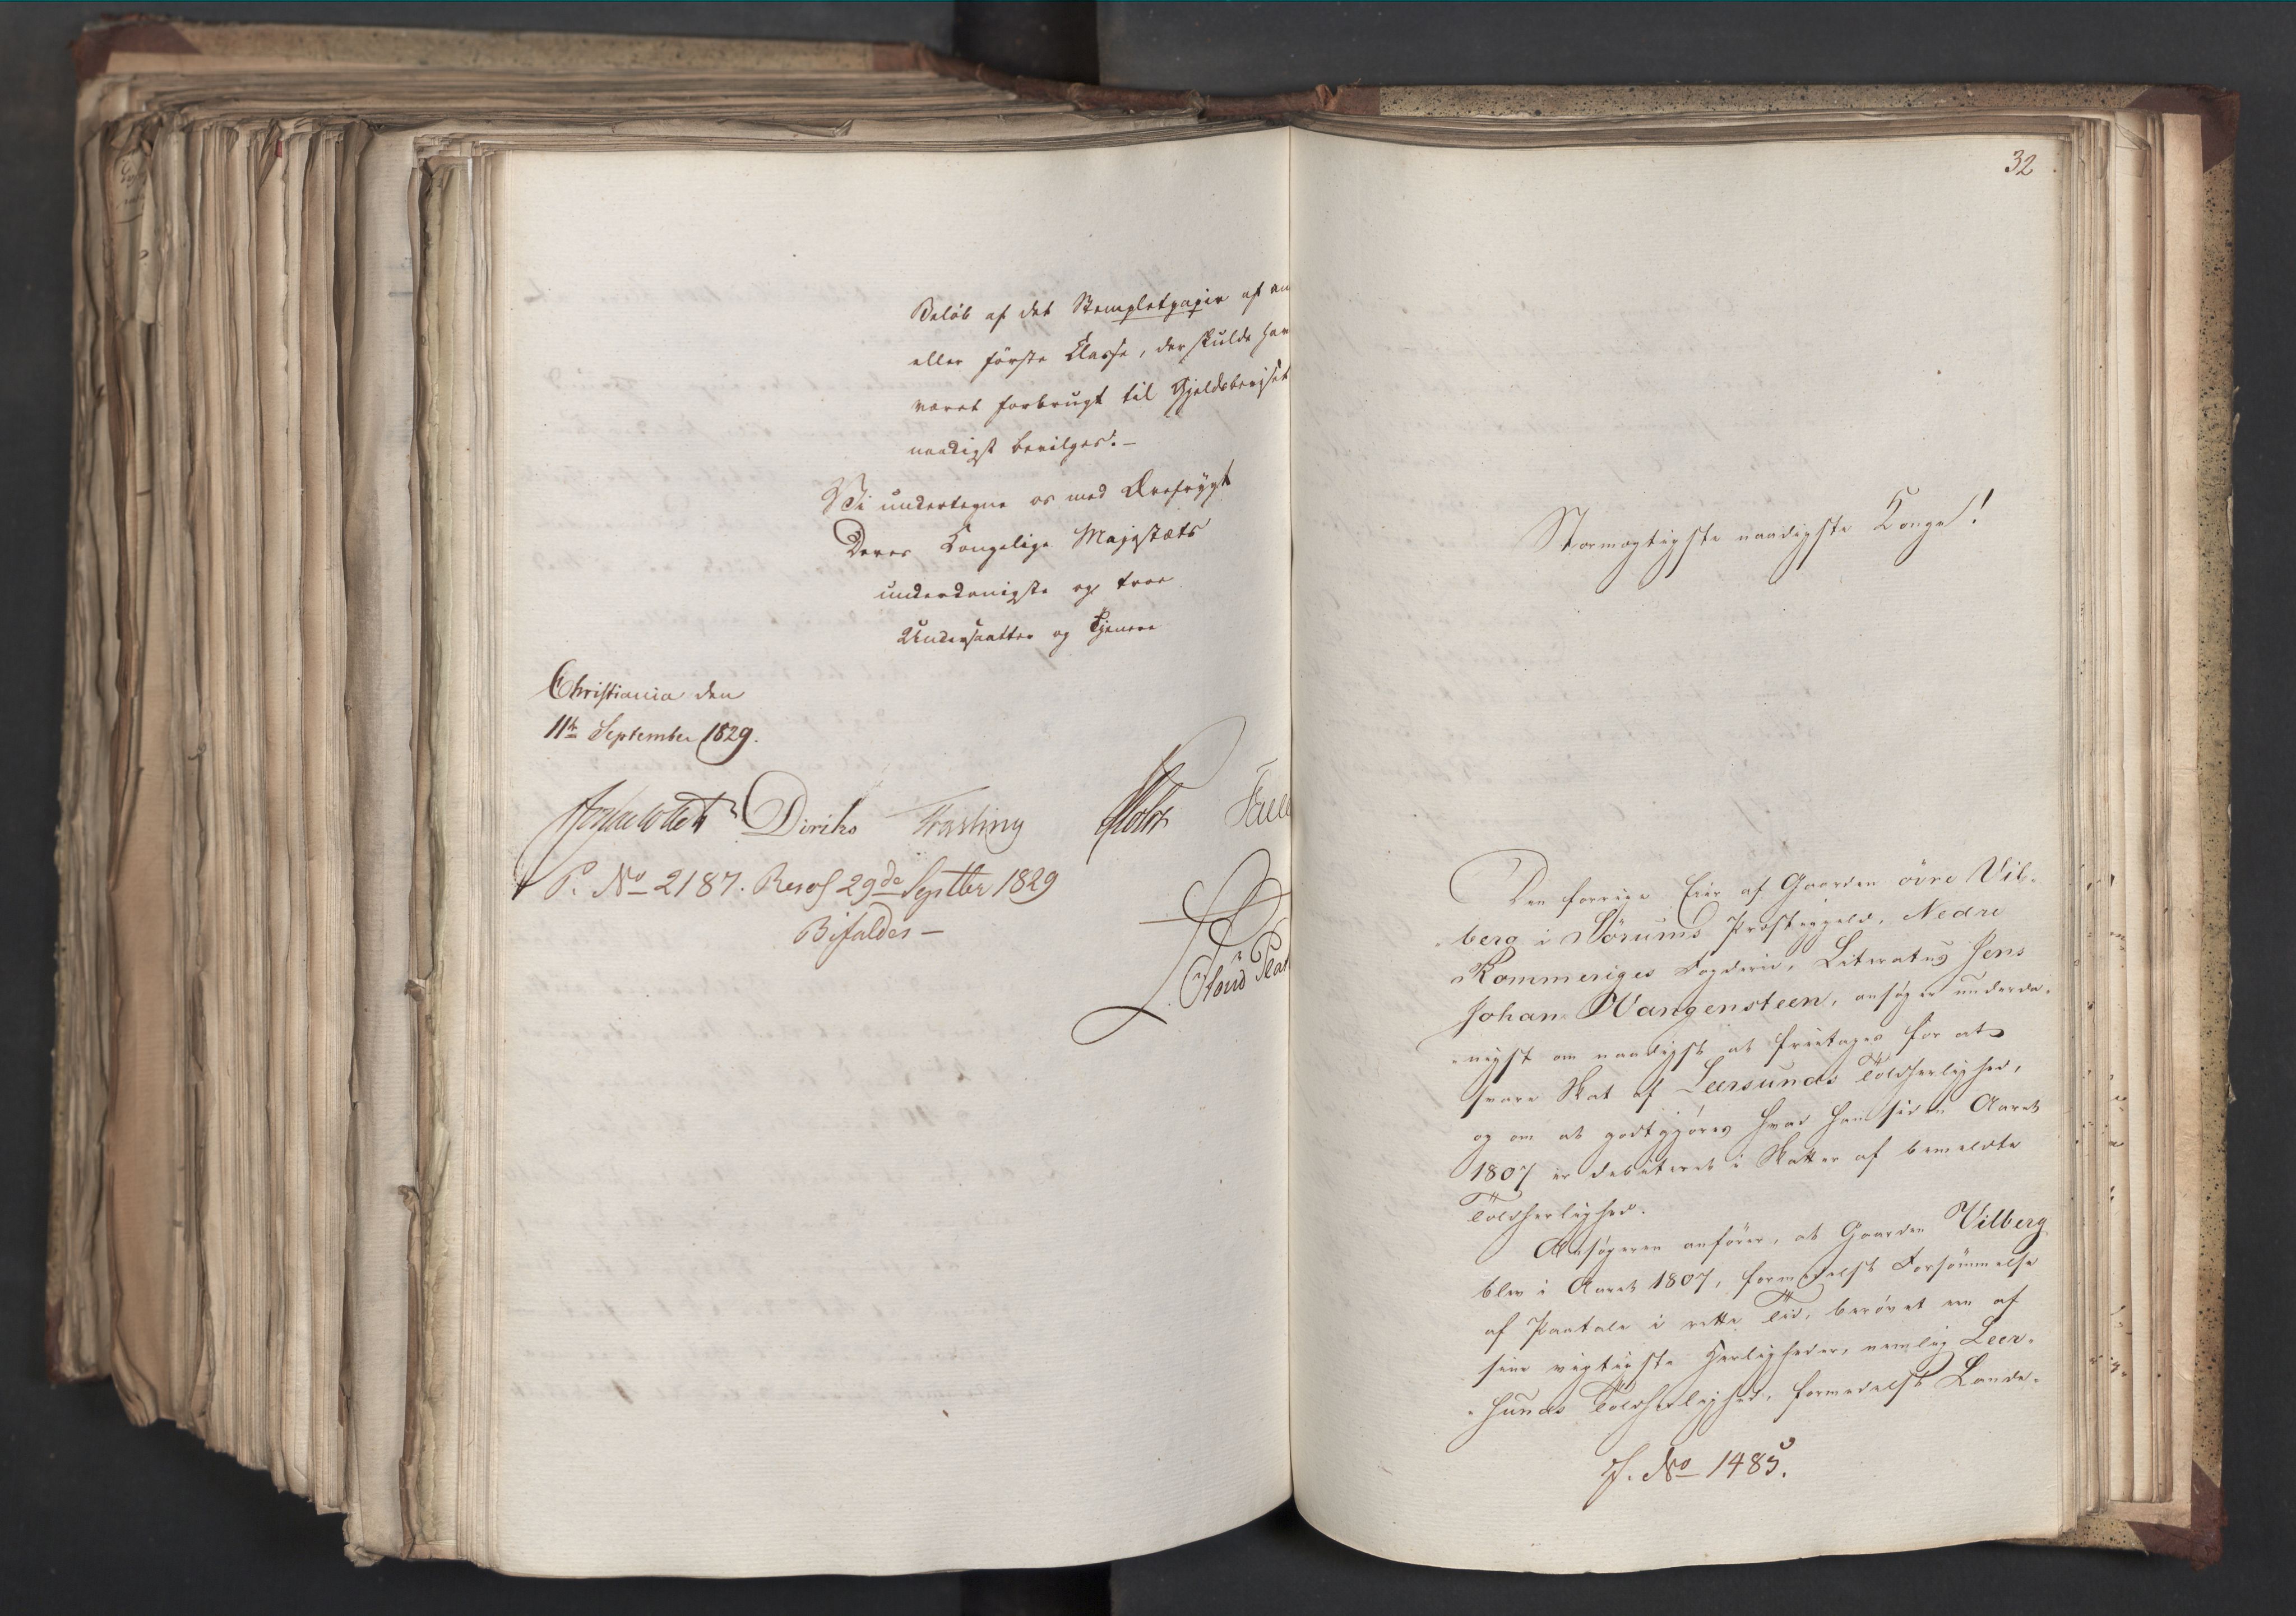 Beløb af det Stempletpapir af an
eller første Classe, der skulde hav
været forbrugt til Gjeldsbeviset
naadigst bevilges. —
Vi undertegne os med Ærefrygt
Deres Kongelige Majestæts
underdanigste og troe
Undersaatter og Tjenere
Christiania den
11te September 1829.
Diriks
P. No 2187. Resol 29de Septbr 1829
Bifaldes —
32
Stormægtigste naadigste Konge!
Den forrige Eier af Gaarden øvre Vil-
berg i Sørums Præstegjeld, Nedre
Rommeriges Fogderie, Literatus Jens
Johan Wangensteen, ansøger underda-
nigst om naadigst at fritages for at
svare Skat af Leersunds Toldherlighed,
og om at godtgjøres hvad han siden Aaret
1807 er debiteret i Skatter af bemeldte
Toldherlighed.
Ansøgeren anfører, at Gaarden Vilberg
blev i Aaret 1807, formedelst Forsømmelse
af Paatale i rette Tid, berøvet en af
sine vigtigste Herligheder, nemlig Leer-
sunds Toldherlighed, formedelst Lande-
J. No 1485.